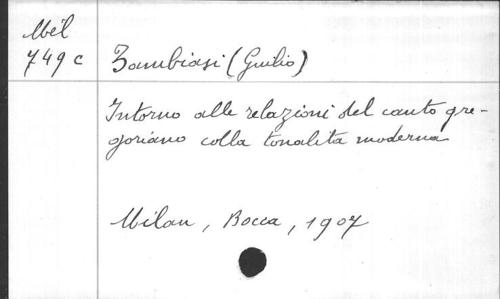 Mél
749 c
Zambiasi (Giulio)
Intorno alle relazioni del canto gre-
goriano colla tonalita moderna
Milan, Bocca, 1907